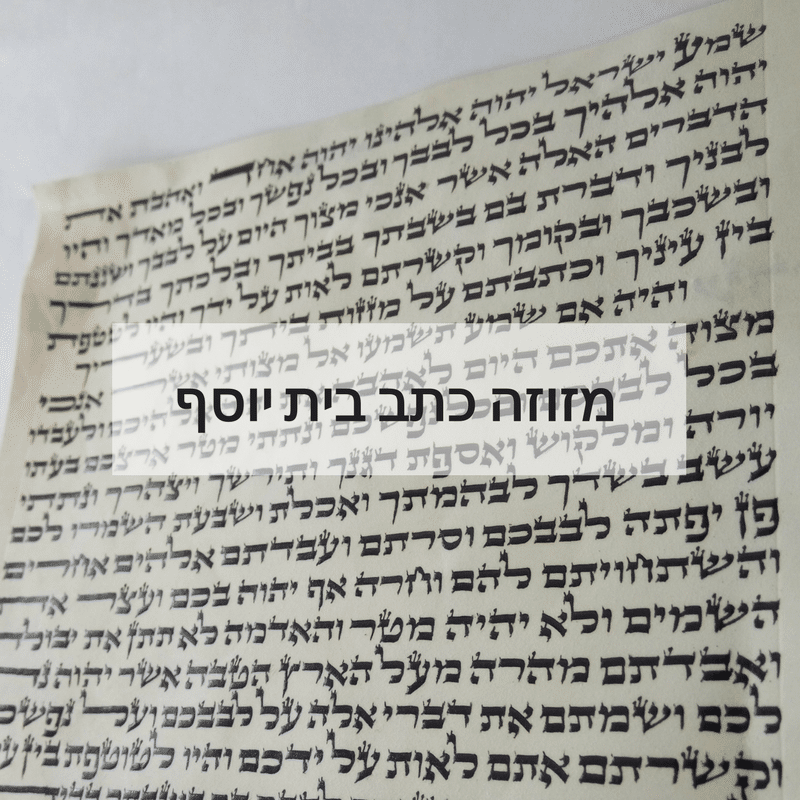 שמע ישראל יהוה אלהינו יהוה אחד ואהבת את
יהוה אלהיך בכל לבבך ובכל נפשך ובכל מאדך והיו
הדברים האלה אשר אנכי מצוך היום על לבבך ושננתם
לבניך ודברת בם בשבתך בביתך ובלכתך בדרך
ובשכבך ובקומך וקשרתם לאות על ידך והיו לטטפת
בין עיניך וכתבתם על מזזות ביתך ובשעריך
והיה אם שמע תשמעו אל מצותי אשר אנכי
מצוה אתכם היום לאהבה אלהיכם ולעבדו
מזוזה כתב בית יוסף
בכל לבבכם נפשכם ונתתי מטר ארצכם בעתו
יורה ומלקוש ואספת דגנך ותירשך ויצהרך ונתתי
עשב בשדך לבהמתך ואכלת ושבעת השמרו לכם
פן יפתה לבבכם וסרתם ועבדתם אלהים אחרים
והשתחויתם להם וחרה אף יהוה בכם ועצר את
השמים ולא יהיה מטר והאדמה לא תתן את יבולה
ואבדתם מהרה מעל הארץ הטבה אשר יהוה
לכם ושמתם את דברי אלה על לבבכם ועל נפשכם
וקשרתם אתם לאות על ידכם והיו לטוטפת בין